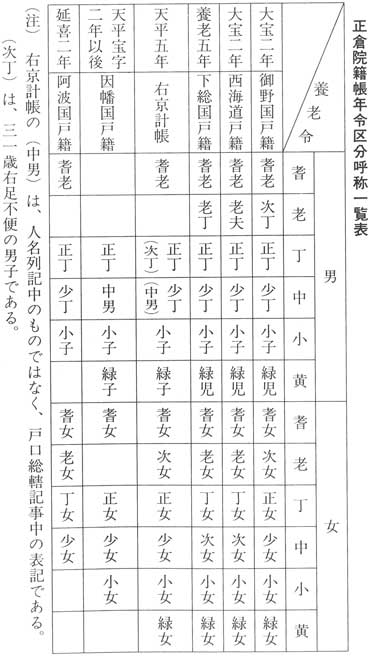 正倉院籍帳年令区分呼称一覧表
養老令 男 女
耆 老 丁 中 小 黄 耆 老 丁 中 小 黄
大宝二年 御野国戸籍 耆老 次丁 正丁 少丁 小子 緑児 耆女 次女 正女 少女 小女 緑女
大宝二年 西海道戸籍 耆老 老夫 正丁 少丁 小子 緑児 耆女 老女 丁女 次女 小女 緑女
養老五年 下総国戸籍 耆老 老丁 正丁 少丁 小子 緑児 耆女 老女 丁女 次女 小女 緑女
天平五年 右京計帳 耆老 正丁 少丁 小子 緑子 耆女 次女 正女 少女 小女 緑女
(次丁) (中男)
天平宝字
二年以後 因幡国戸籍 正丁 中男 小子 緑子 耆女 正女 少女 小女
延喜二年 阿波国戸籍 耆老 正丁 少丁 小子 耆女 老女 丁女 少女
(注) 右京計帳の(中男)は、人名列記中のものではなく、戸口総轄記事中の表記である。
(次丁)は、三一歳右足不便の男子である。